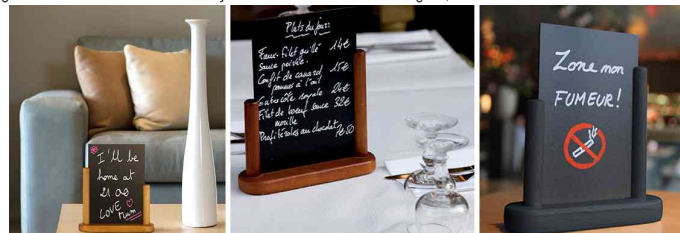 I'll be
home at
21.00
LOVE
Mum
Plats du jour:
Faux-filet grillé 14€
Sauce poivrée
Confit de canard 15€
pommes à l'ail
Entrecôte royale 24€
Filet de boeuf sauce 22€
morille
Profiteroles au chocolat 7€50
Zone non
FUMEUR!